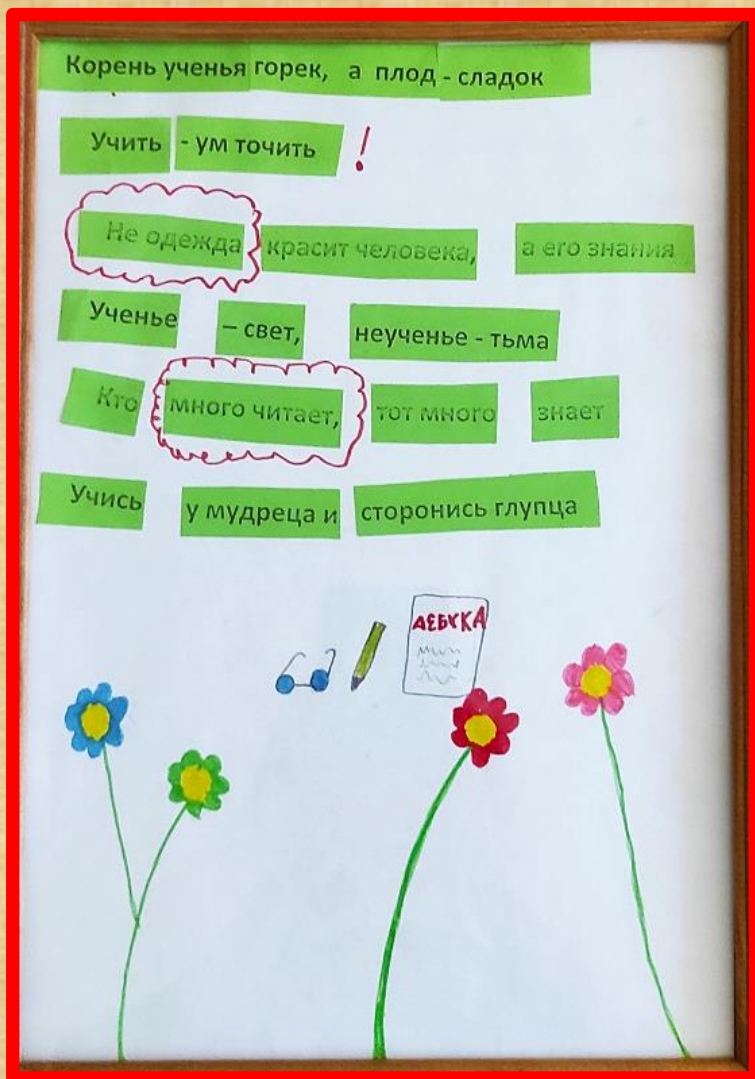 Корень ученья горек, а плод - сладок
Учить - ум точить !
Не одежда красит человека, а его знания
Ученье – свет, неученье - тьма
Кто много читает, тот много знает
Учись у мудреца и сторонись глупца
АЕБУКА